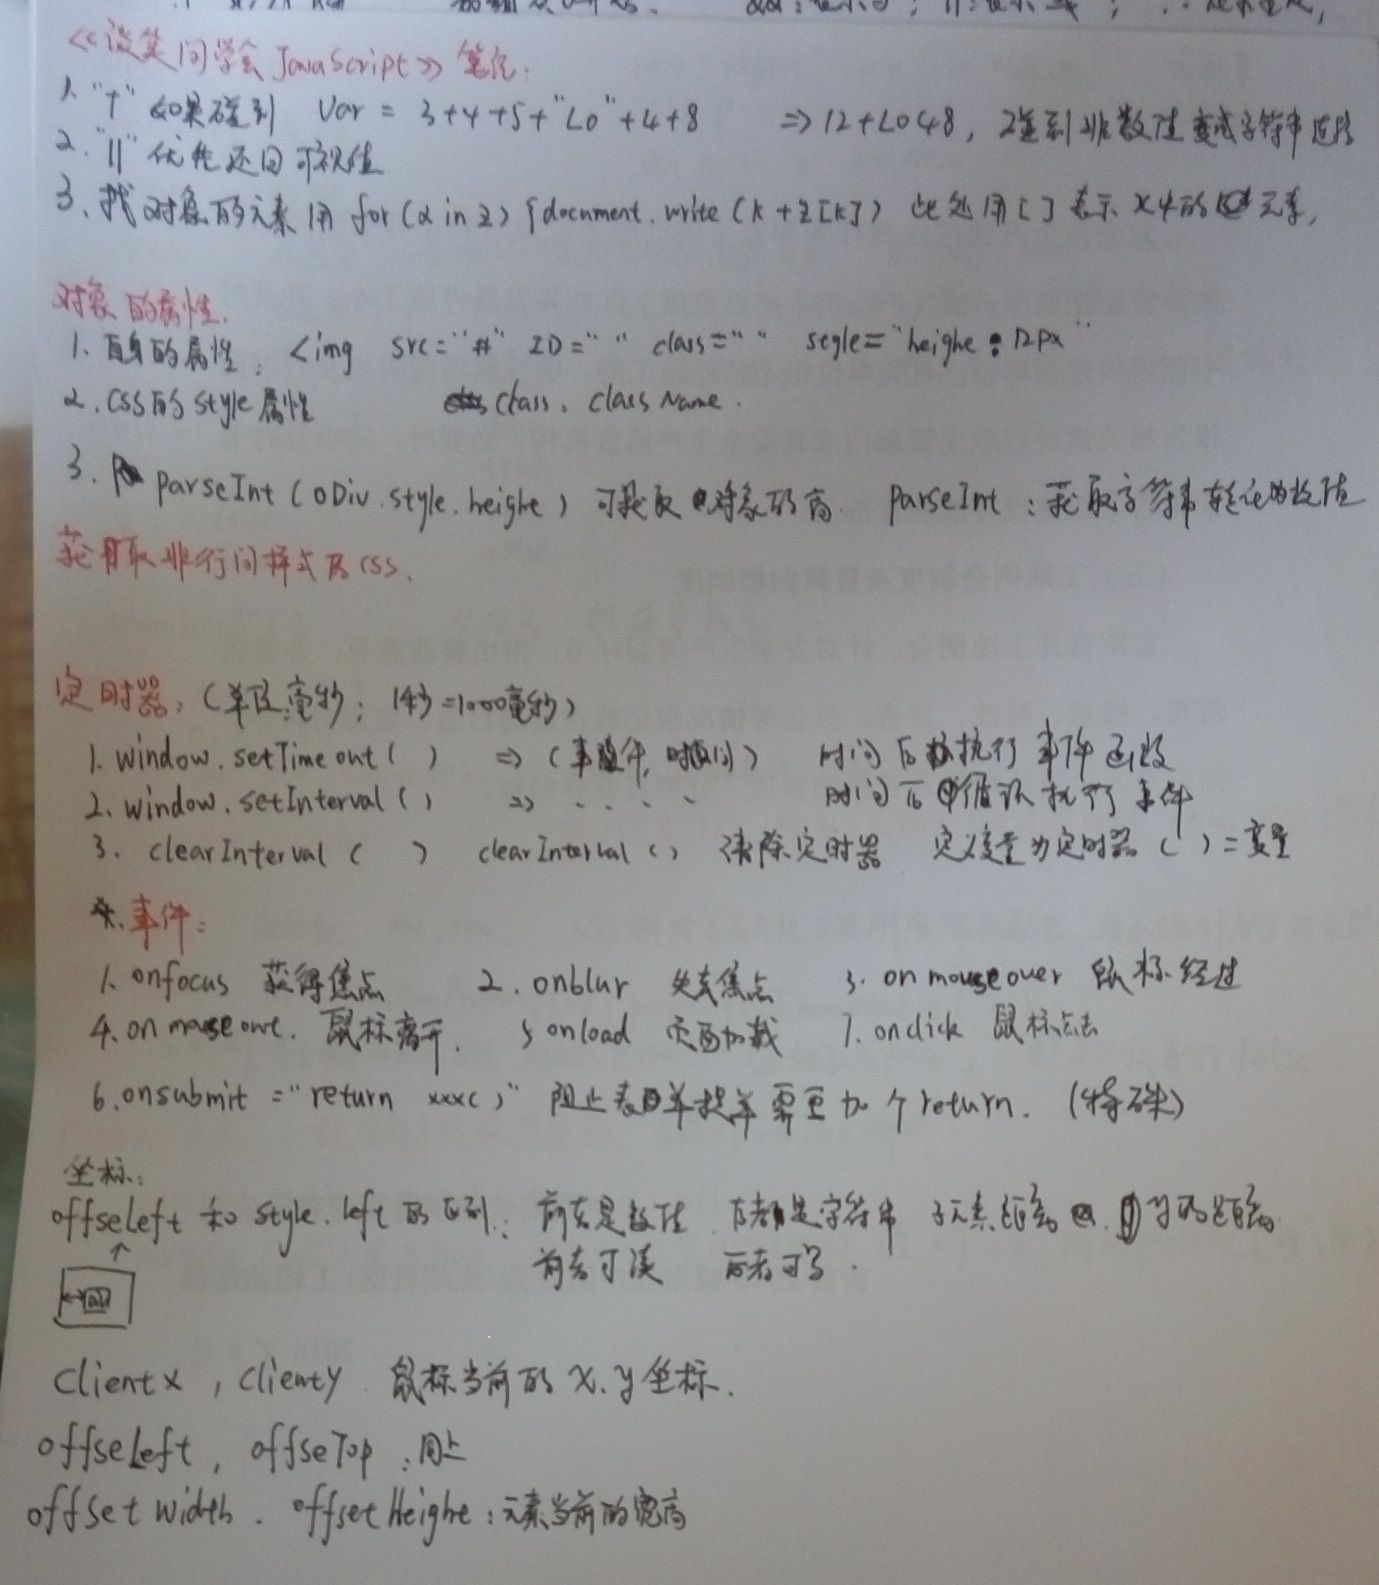 《谈笑间学会JavaScript》笔记:
1. "+" 如果碰到 Var = 3+4+5+"Lo"+4+8 => 12+Lo48, 碰到非数值变成字符串连接
2. "||" 优先返回可视值
3. 找对象的元素用 for(k in z) {document.write(k+z[k]) 此处用[]表示 的 元素,
对象的属性.
1. 自身的属性: <img src="#" ID=" " class=" " style="heighe:12px"
2. CSS的style属性 class. className.
3. parseInt(oDiv.style.heighe) 可获取对象的高. parseInt: 获取字符串转化的数值
获取非行间样式的CSS.
定时器:(单位:毫秒; 1秒=1000毫秒)
1. window.setTimeout( ) => (事件,时间) 时间后执行事件函数
2. window.setInterval() => . . . . 时间后循环执行事件
3. clearInterval ( ) clearInterval() 清除定时器 定义变量为定时器( )=变量
事件:
1. onfocus 获得焦点 2. onblur 失去焦点 3. onmouseover 鼠标经过
4. onmouseout. 鼠标离开. 5 onload 页面加载 7. onclick 鼠标点击
6. onsubmit = "return xxx()" 阻止表单提单需要加个return. (特殊)
坐标:
offseLeft 和 style.left 的区别: 前者是数值 后者是字符串 子元素距离 的距离
前者可读 后者可写.
Clientx , Clienty 鼠标当前的 x.y 坐标.
offseLeft, offseTop :同上
offset width. offset Heighe: 元素当前的宽高